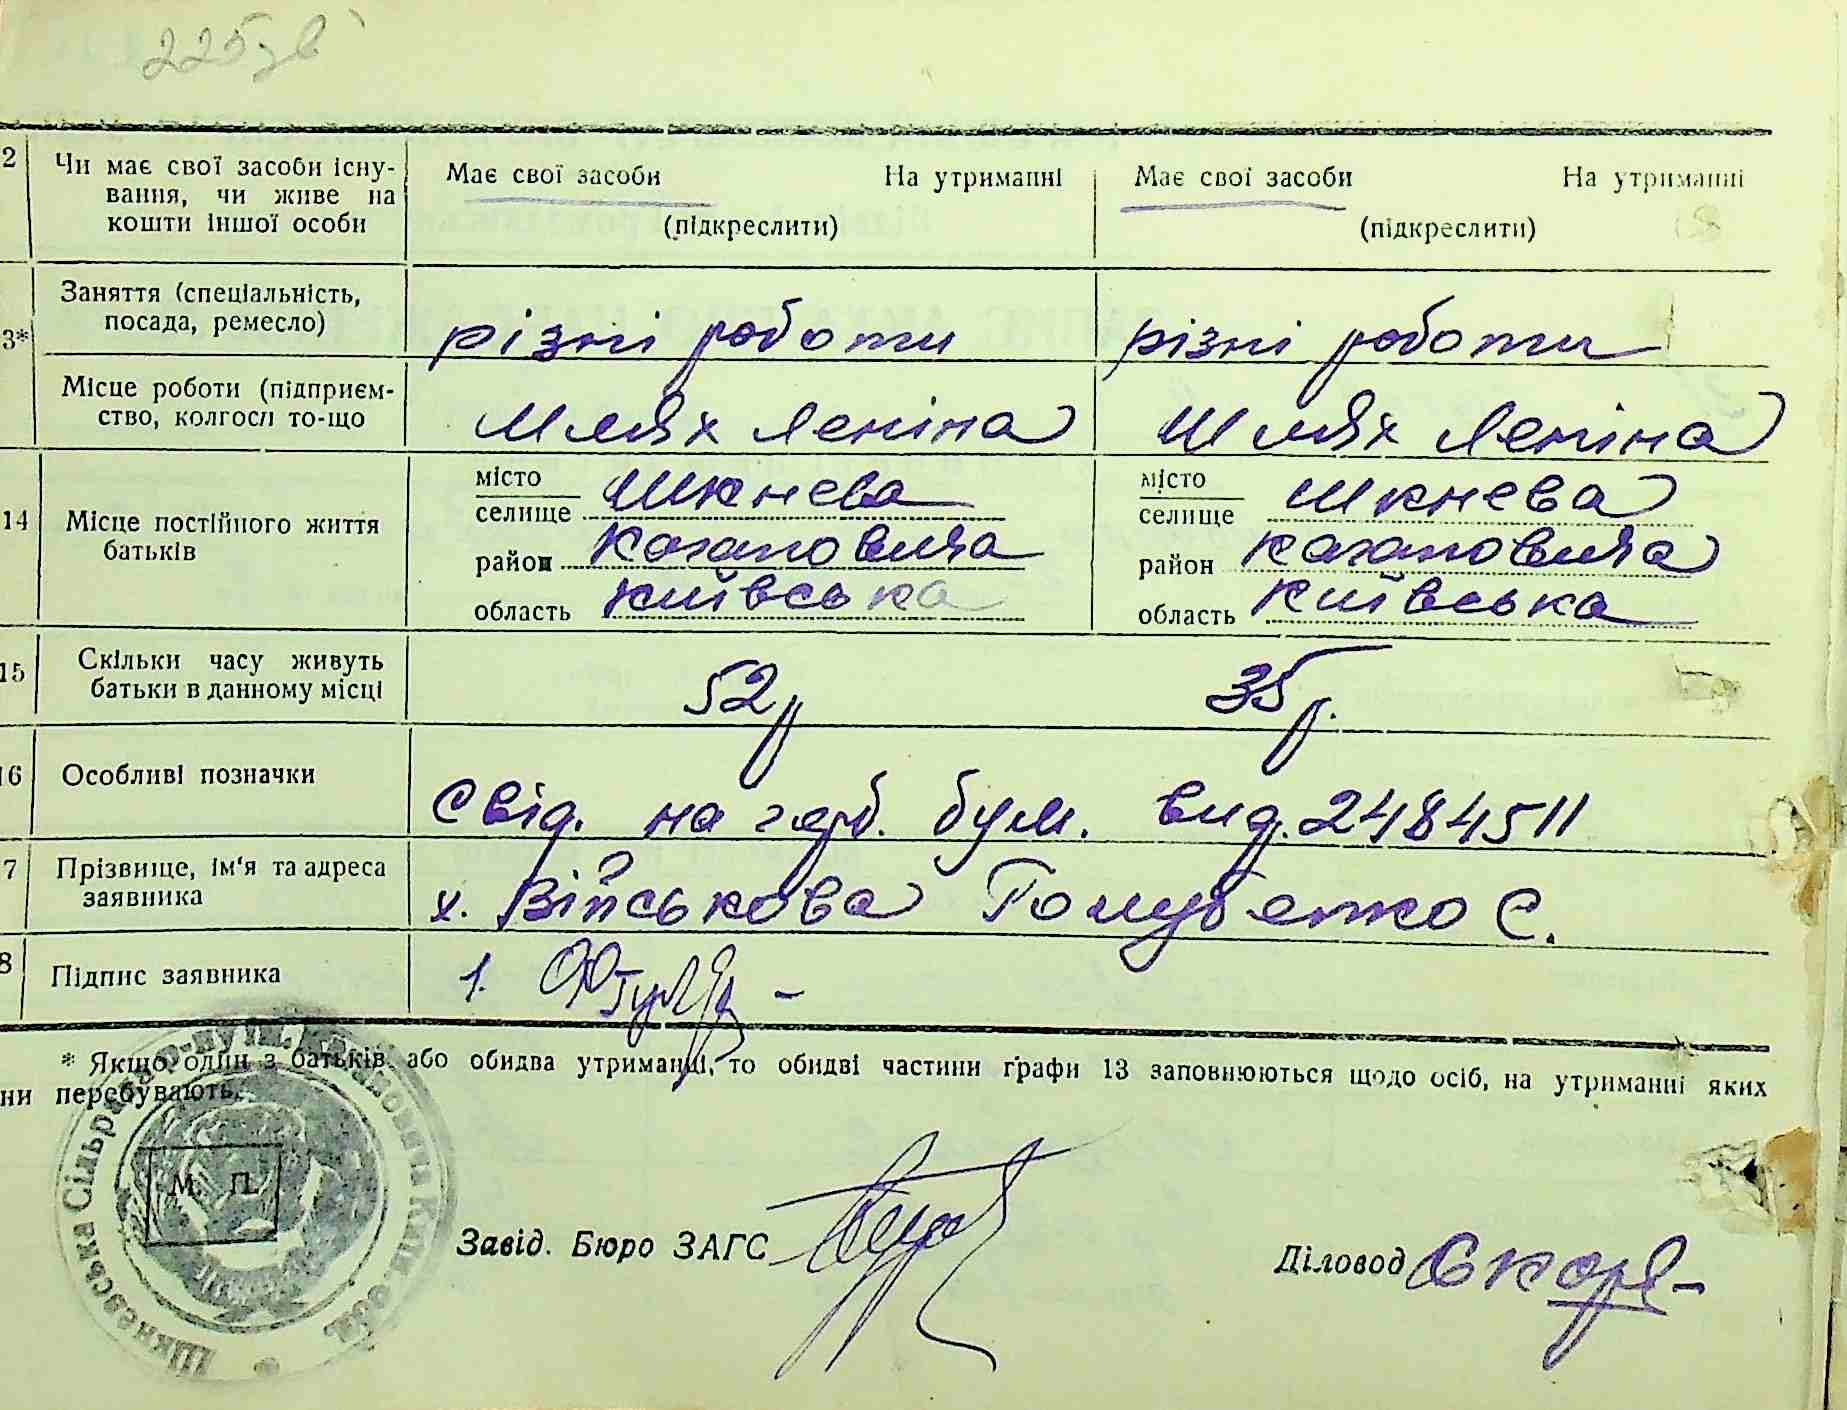 225зв
2 Чи має свої засоби існу- Має свої засоби На утриманні Має свої засоби На утриманні
вання, чи живе на
кошти іншої особи (підкреслити) (підкреслити)
Заняття (спеціальність,
посада, ремесло) різні роботи різні роботи
3*
Місце роботи (підприєм-
ство, колгосп то-що Шлях Леніна Шлях Леніна
місто Шкнєва місто Шкнева
селище селище
14 Місце постійного життя
батьків
район Кагановича район Кагановича
область Київська область Київська
15 Скільки часу живуть
батьки в данному місці 52р 35р.
16 Особливі позначки
Свід. на герб. бум. вид. 2484511
7 Прізвище, ім'я та адреса
заявника х. Військова Голубенко С.
8 Підпис заявника 1.
* Якщо один з батьків або обидва утриманці, то обидві частини графи 13 заповнюються щодо осіб, на утриманні яких
ни перебувають.
Шкневська Сільрада р-ну ім. Кагановича Київ. обл.
М. П.
Завід. Бюро ЗАГС Діловод